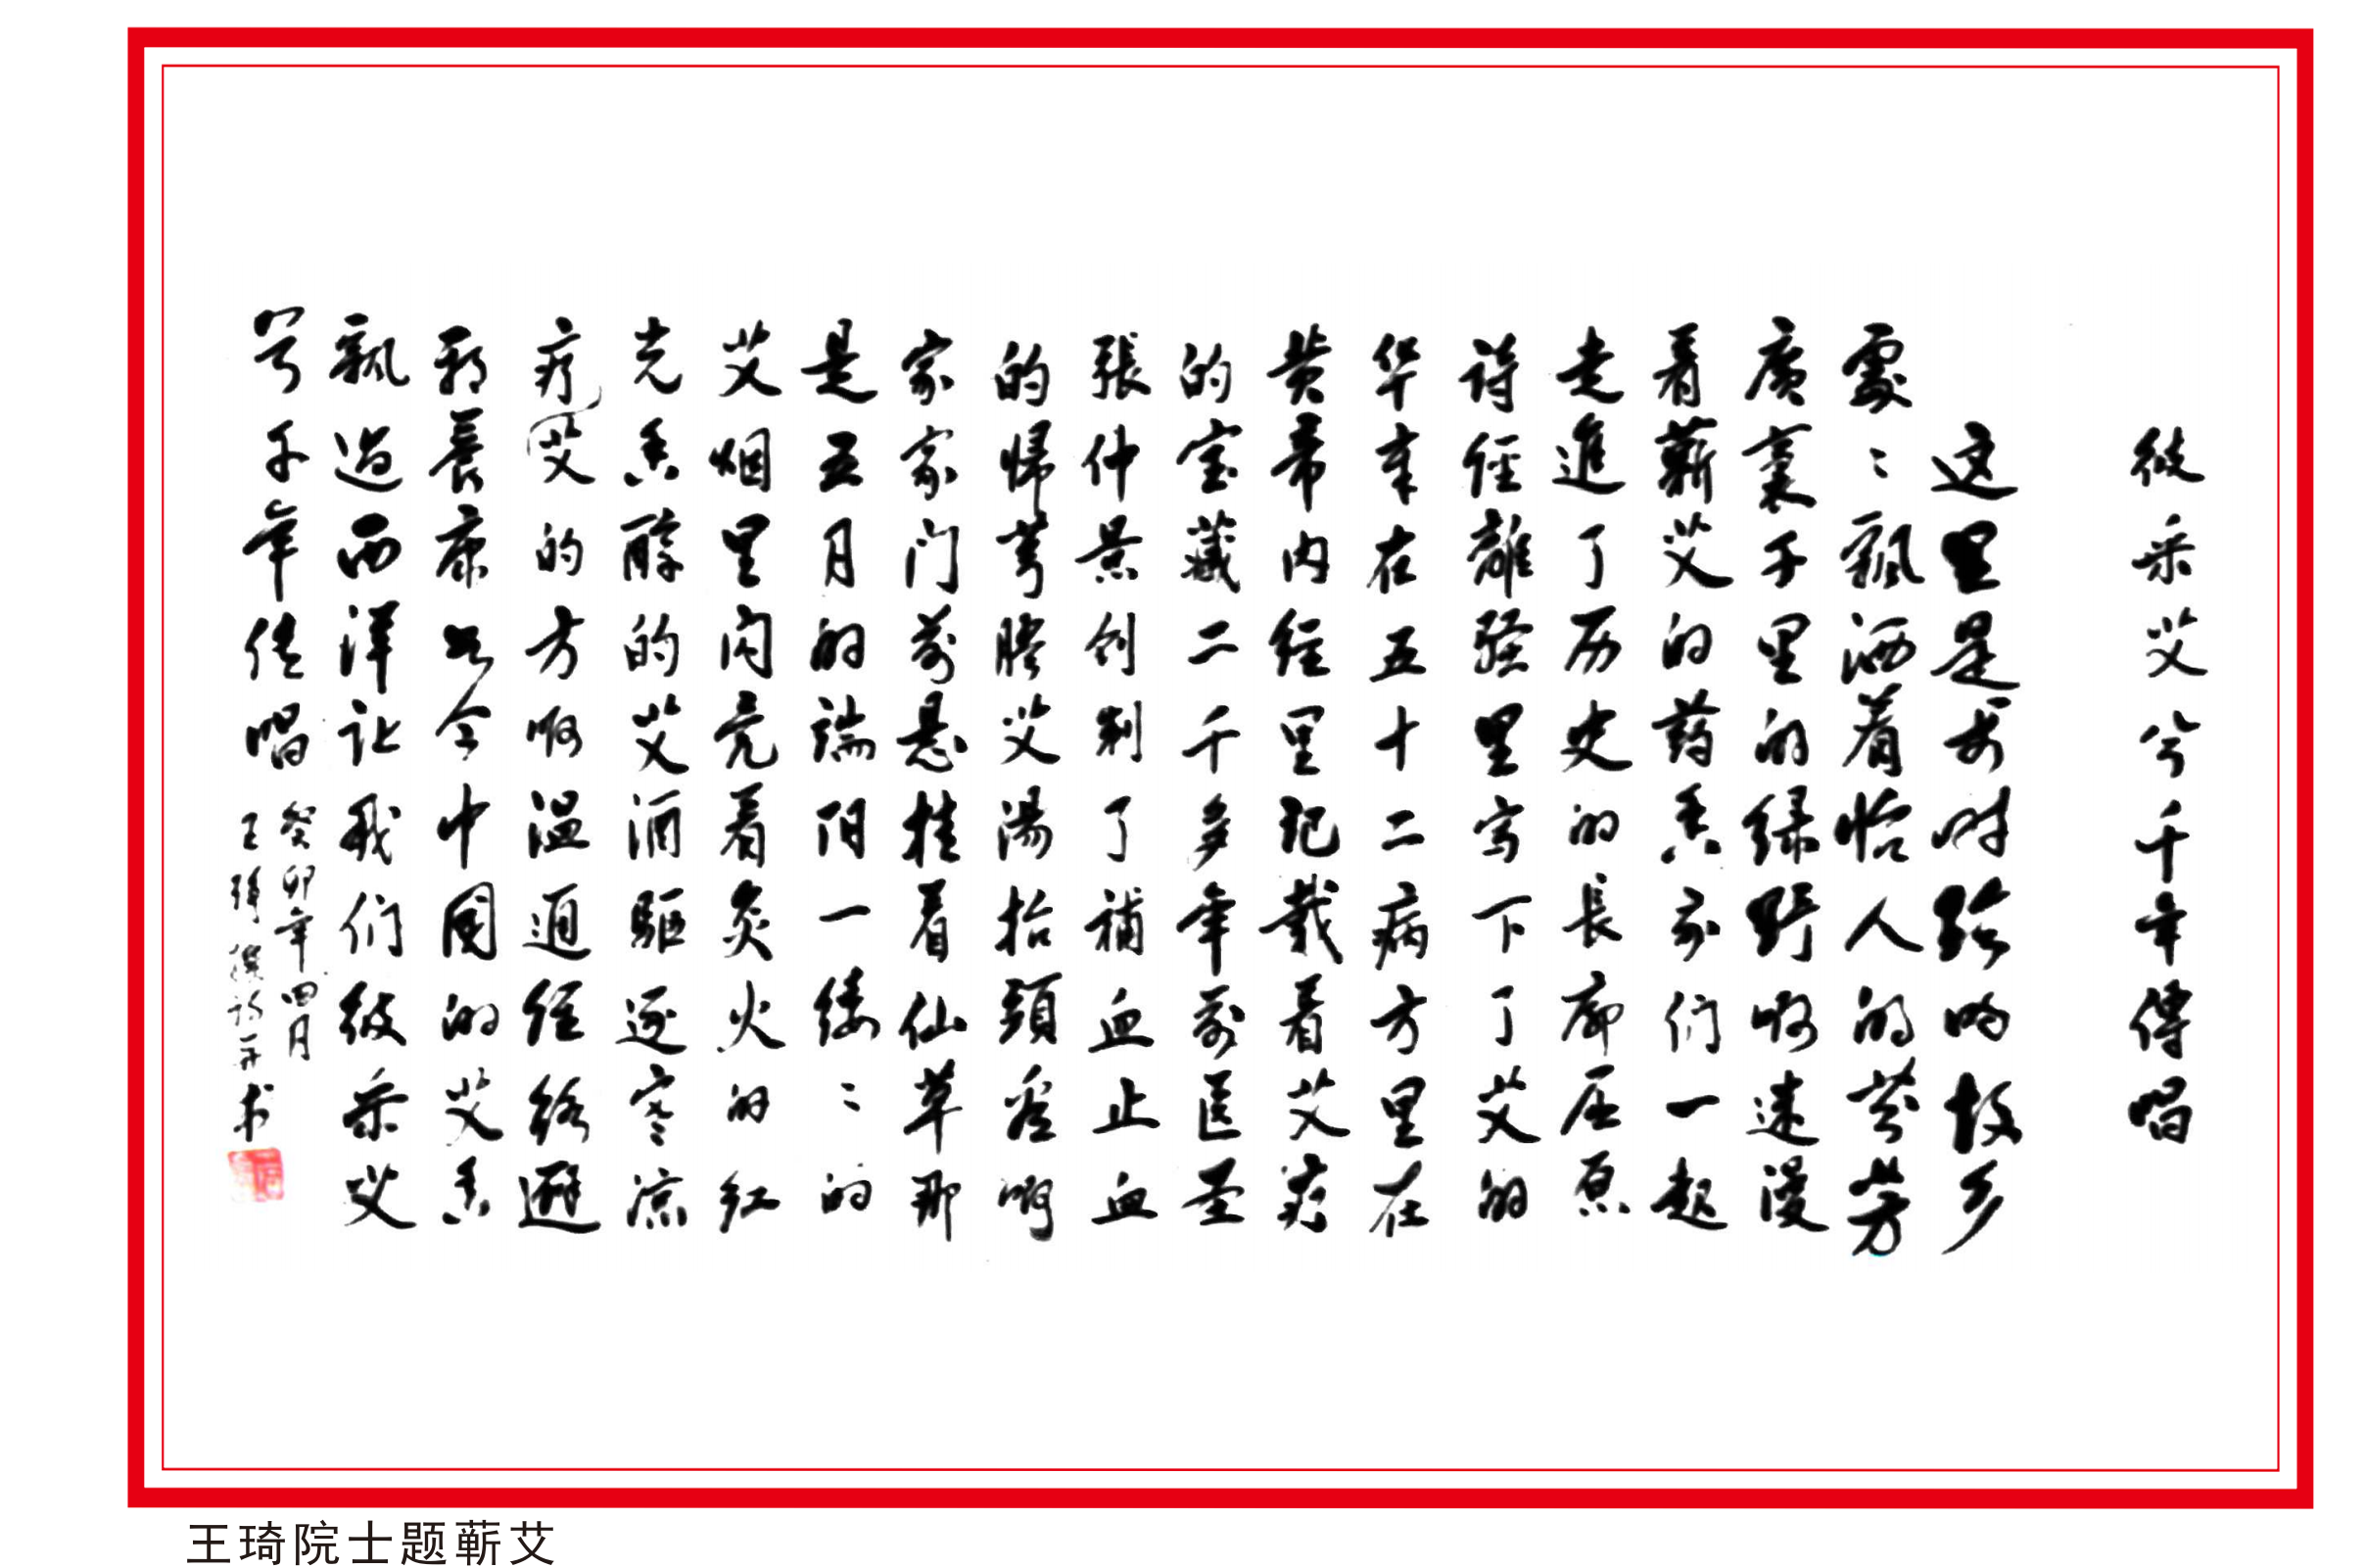 彼采艾兮千年傳唱
这里是李时珍的故乡
處々飘洒着怡人的芬芳
廣袤千里的绿野啊迷漫
着蕲艾的药香我们一起
走進了历史的長廊屈原
诗经離骚里写下了艾的
华章在五十二病方里在
黄帝内经里记载着艾疗
的宝藏二千多年前医圣
張仲景创制了補血止血
的歸芎胶艾湯抬頭看啊
家家门前悬挂着仙草那
是五月的端阳一缕々的
艾烟里闪亮着灸火的红
光香醇的艾酒驅逐寒凉
疗艾的方啊温通经络避
邪養康如今中國的艾香
飘過西洋让我们彼采艾
兮千年传唱
癸卯年四月
王琦撰诗并书
王琦院士题蕲艾